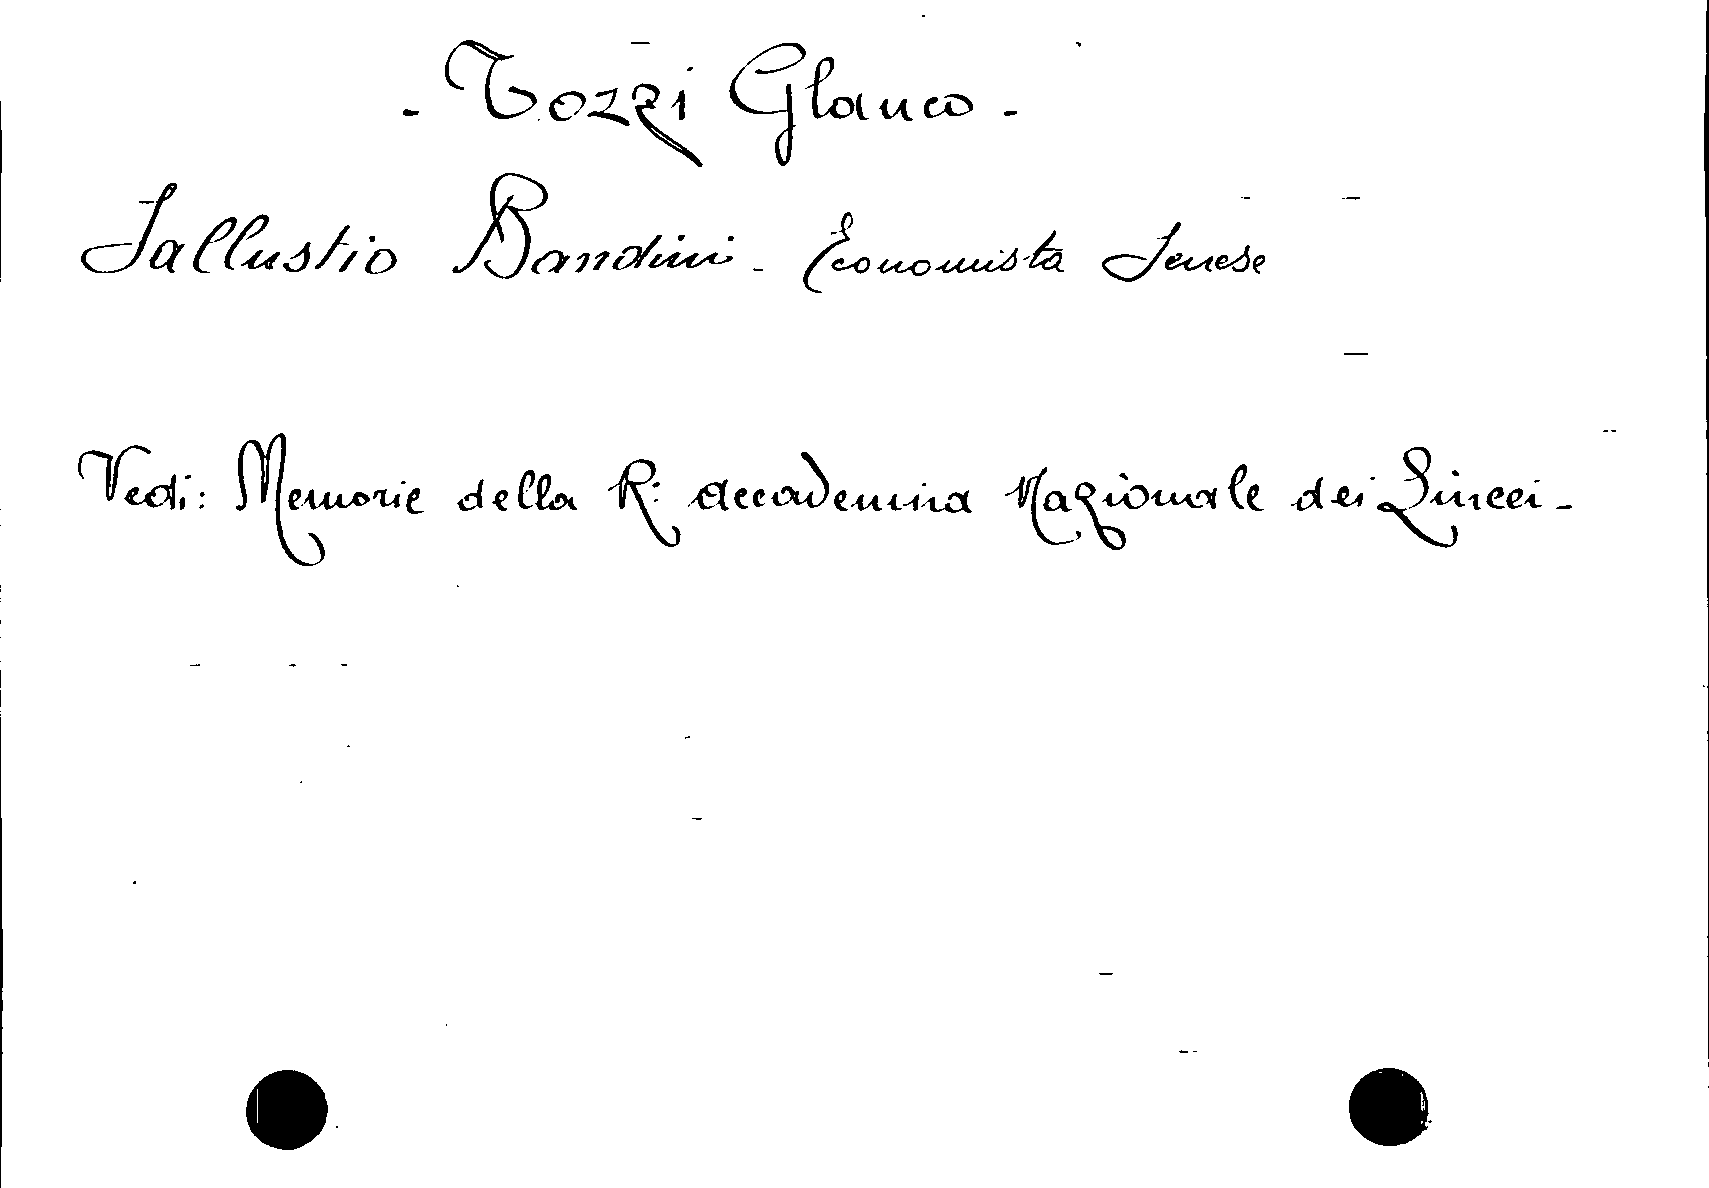 - Tozzi Glauco -
Sallustio Bandini - Economista Senese
Vedi: Memorie della R. accademia Nazionale dei Lincei -